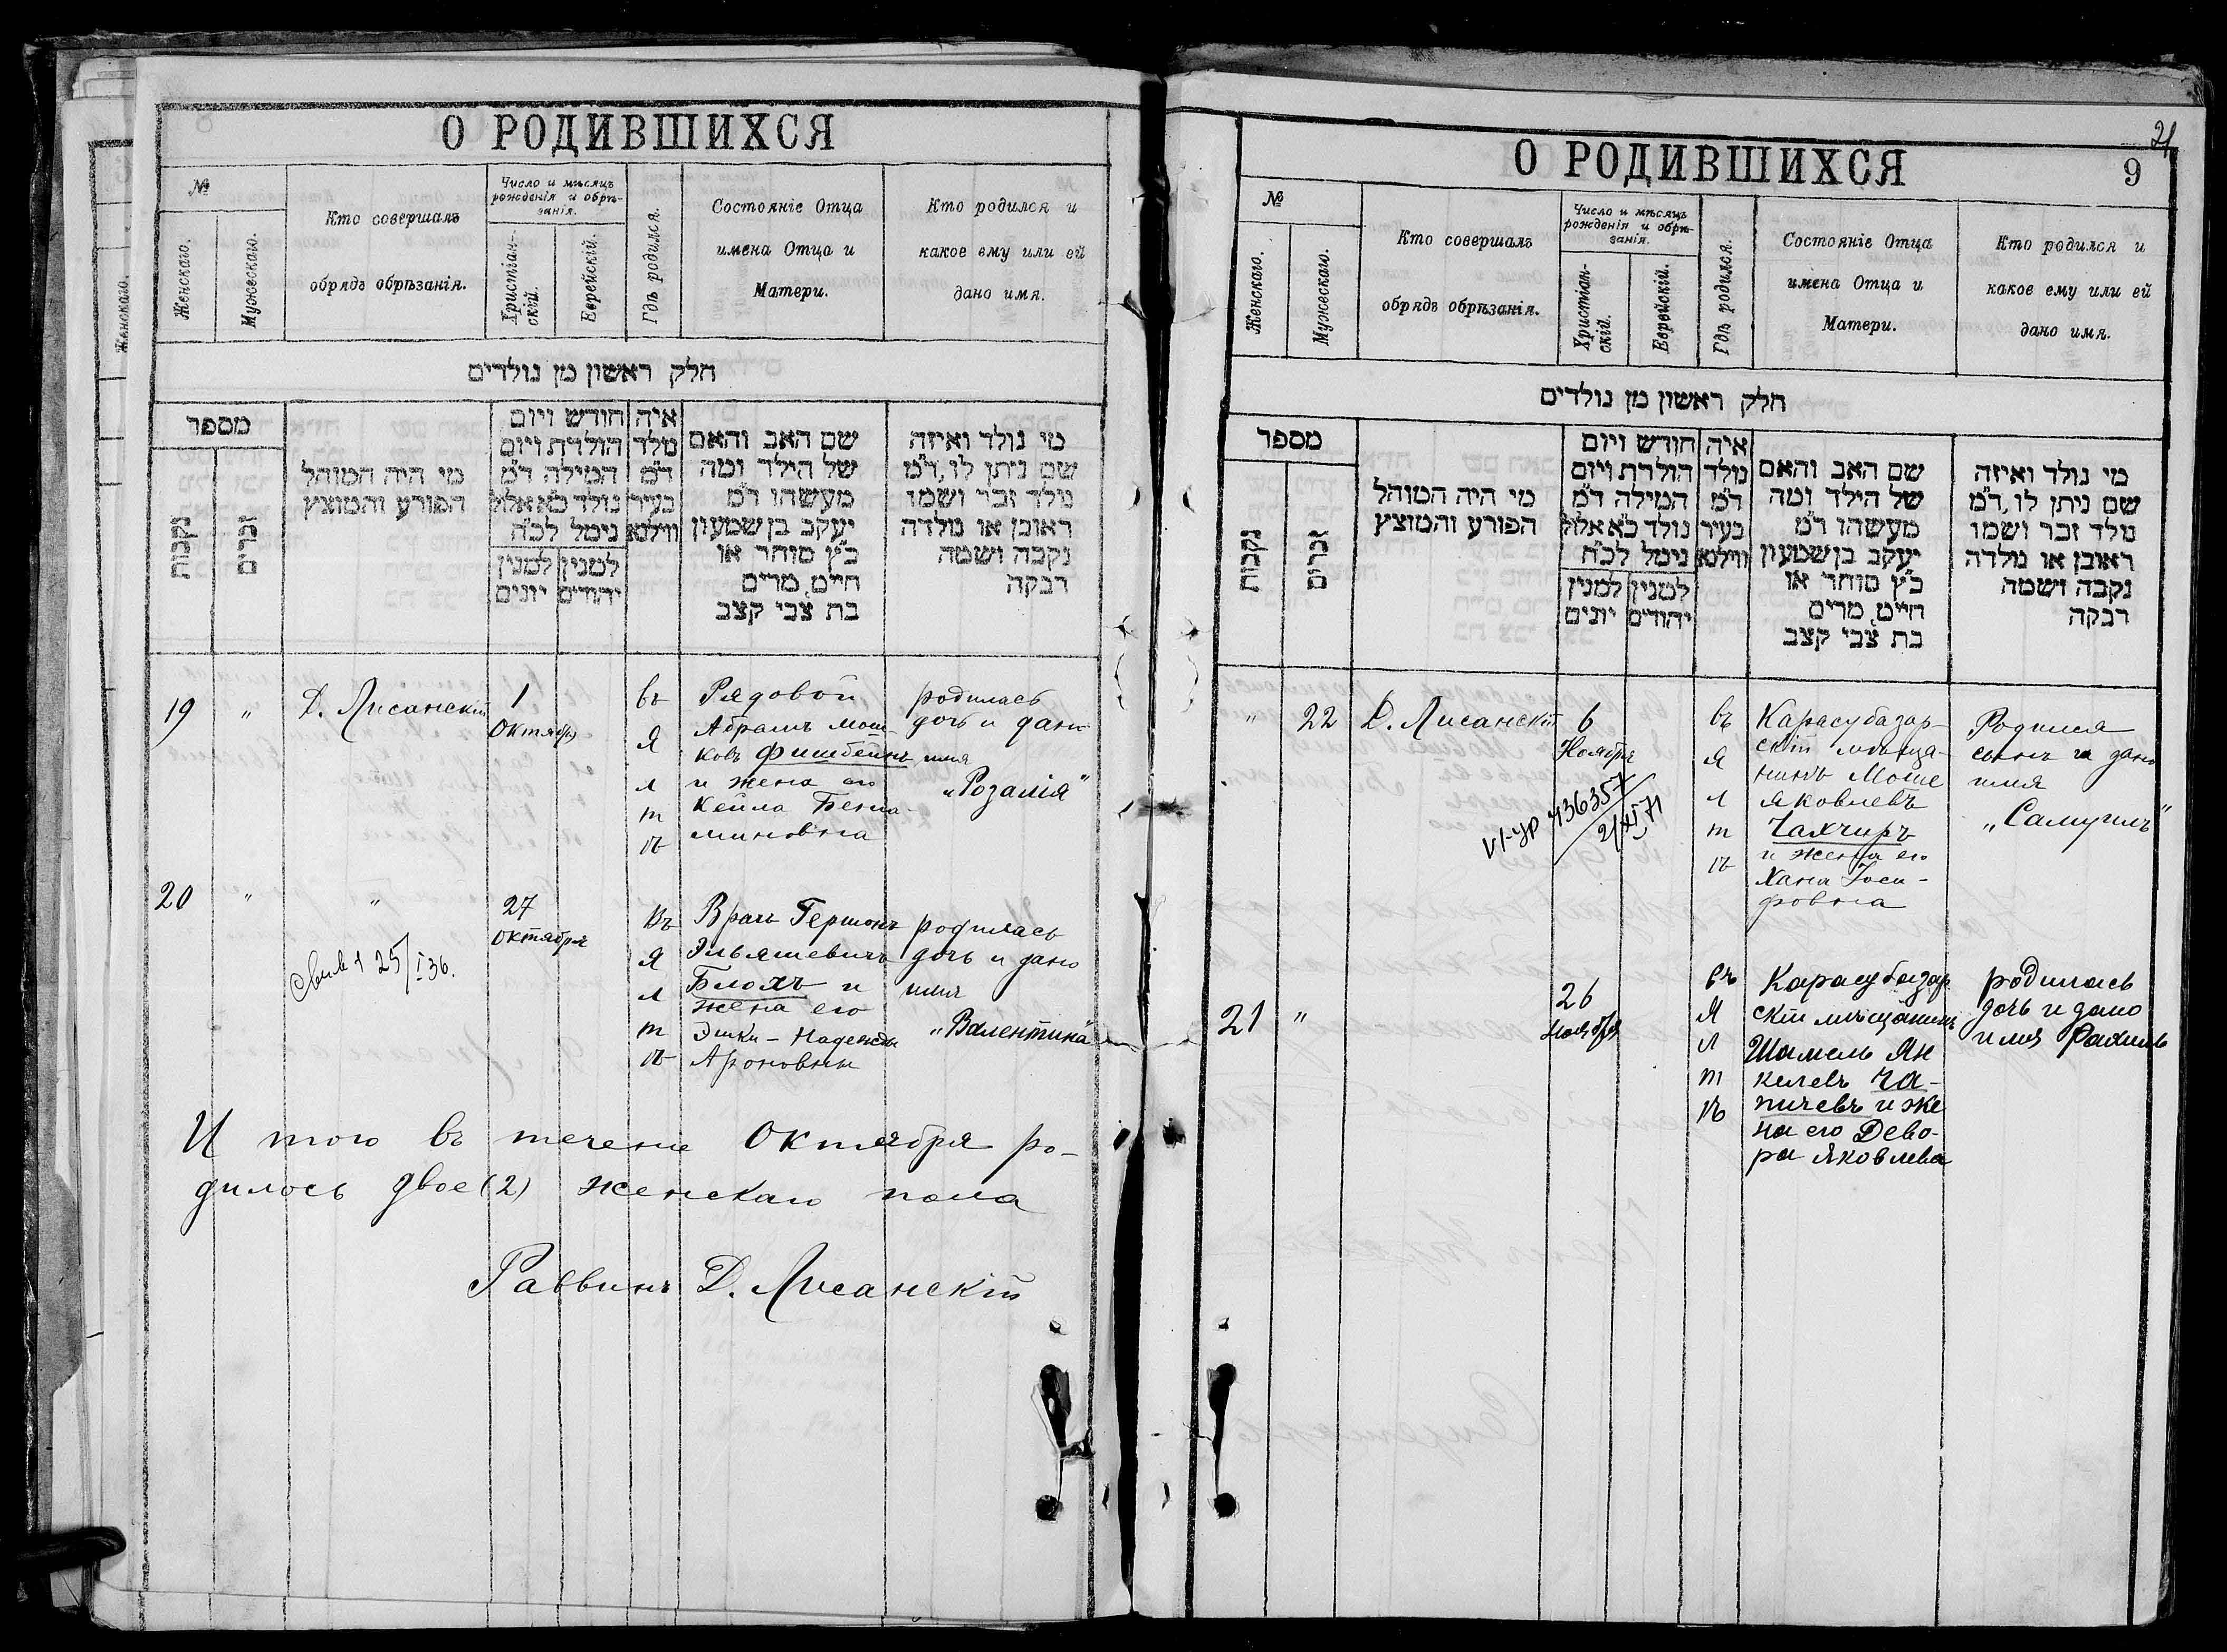 О РОДИВШИХСЯ
№
Женскаго.
Мужескаго.
Кто совершалъ
обрядъ обрѣзанія.
Число и мѣсяцъ
рожденія и обрѣ-
занія.
Христіан-
скій.
Еврейскій.
Гдѣ родился.
Состояніе Отца
имена Отца и
Матери.
Кто родился и
какое ему или ей
дано имя.
חלק ראשון מן נולדים
מספר
נקבות
זכרים
מי היה המוהל
הפורע והמוצץ
חודש ויום
הולדת ויום
המילה ד״מ
נולד כ״א אלול
נימל לכ״ח
למנין
יונים
למנין
יהודים
איה
נולד
ד״מ
בעיר
ווילנא
שם האב והאם
של הילד ומה
מעשהו ד״מ
יעקב בן שמעון
כ״ץ סוחר או
חייט, מרים
בת צבי קצב
מי נולד ואיזה
שם ניתן לו, ד״מ
נולד זכר ושמו
ראובן או נולדה
נקבה ושמה
רבקה
19 " Д. Лисанскій
1
Октября
въ
Я
л
т
ѣ
Рядовой
Абрамъ Мош-
ковъ Фишбейнъ
и жена его
Кейла Бенья-
миновна
родилась
дочь и дано
имя
„Розалія"
20 " "
27
октября
Въ
Я
л
т
ѣ
Врачъ Гершонъ
Эльяшевичъ
Блохъ и
жена его
Эшки - Надежды
Ароновны
родилась
дочь и дано
имя
„Валентина"
25/I 36.
И того въ теченіе Октября ро-
дилось двое (2) женскаго пола
Раввинъ Д. Лисанскій
21
О РОДИВШИХСЯ
9
№
Женскаго.
Мужескаго.
Кто совершалъ
обрядъ обрѣзанія.
Число и мѣсяцъ
рожденія и обрѣ-
занія.
Христіан-
скій.
Еврейскій.
Гдѣ родился.
Состояніе Отца
имена Отца и
Матери.
Кто родился и
какое ему или ей
дано имя.
חלק ראשון מן נולדים
מספר
נקבות
זכרים
מי היה המוהל
הפורע והמוצץ
חודש ויום
הולדת ויום
המילה ד״מ
נולד כ״א אלול
נימל לכ״ח
למנין
יונים
למנין
יהודים
איה
נולד
ד״מ
בעיר
ווילנא
שם האב והאם
של הילד ומה
מעשהו ד״מ
יעקב בן שמעון
כ״ץ סוחר או
חייט, מרים
בת צבי קצב
מי נולד ואיזה
שם ניתן לו, ד״מ
נולד זכר ושמו
ראובן או נולדה
נקבה ושמה
רבקה
" 22 Д. Лисанскій
6
Ноября
VI-УР 436357
21/XI 71
въ
Я
л
т
ѣ
Карасубазар-
скій мѣща-
нинъ Моше
Яковлевъ
Чахчиръ
и жена его
Хана Іоси-
фовна
Родился
сынъ и дано
имя
„Самуилъ"
21 "
26
ноября
въ
Я
л
т
ѣ
Карасубазар
скій мѣщанинъ
Шамель Ян
келевъ Ча-
пичевъ и же
на его Дево-
ра Яковлева
родилась
дочь и дано
имя Рахиль